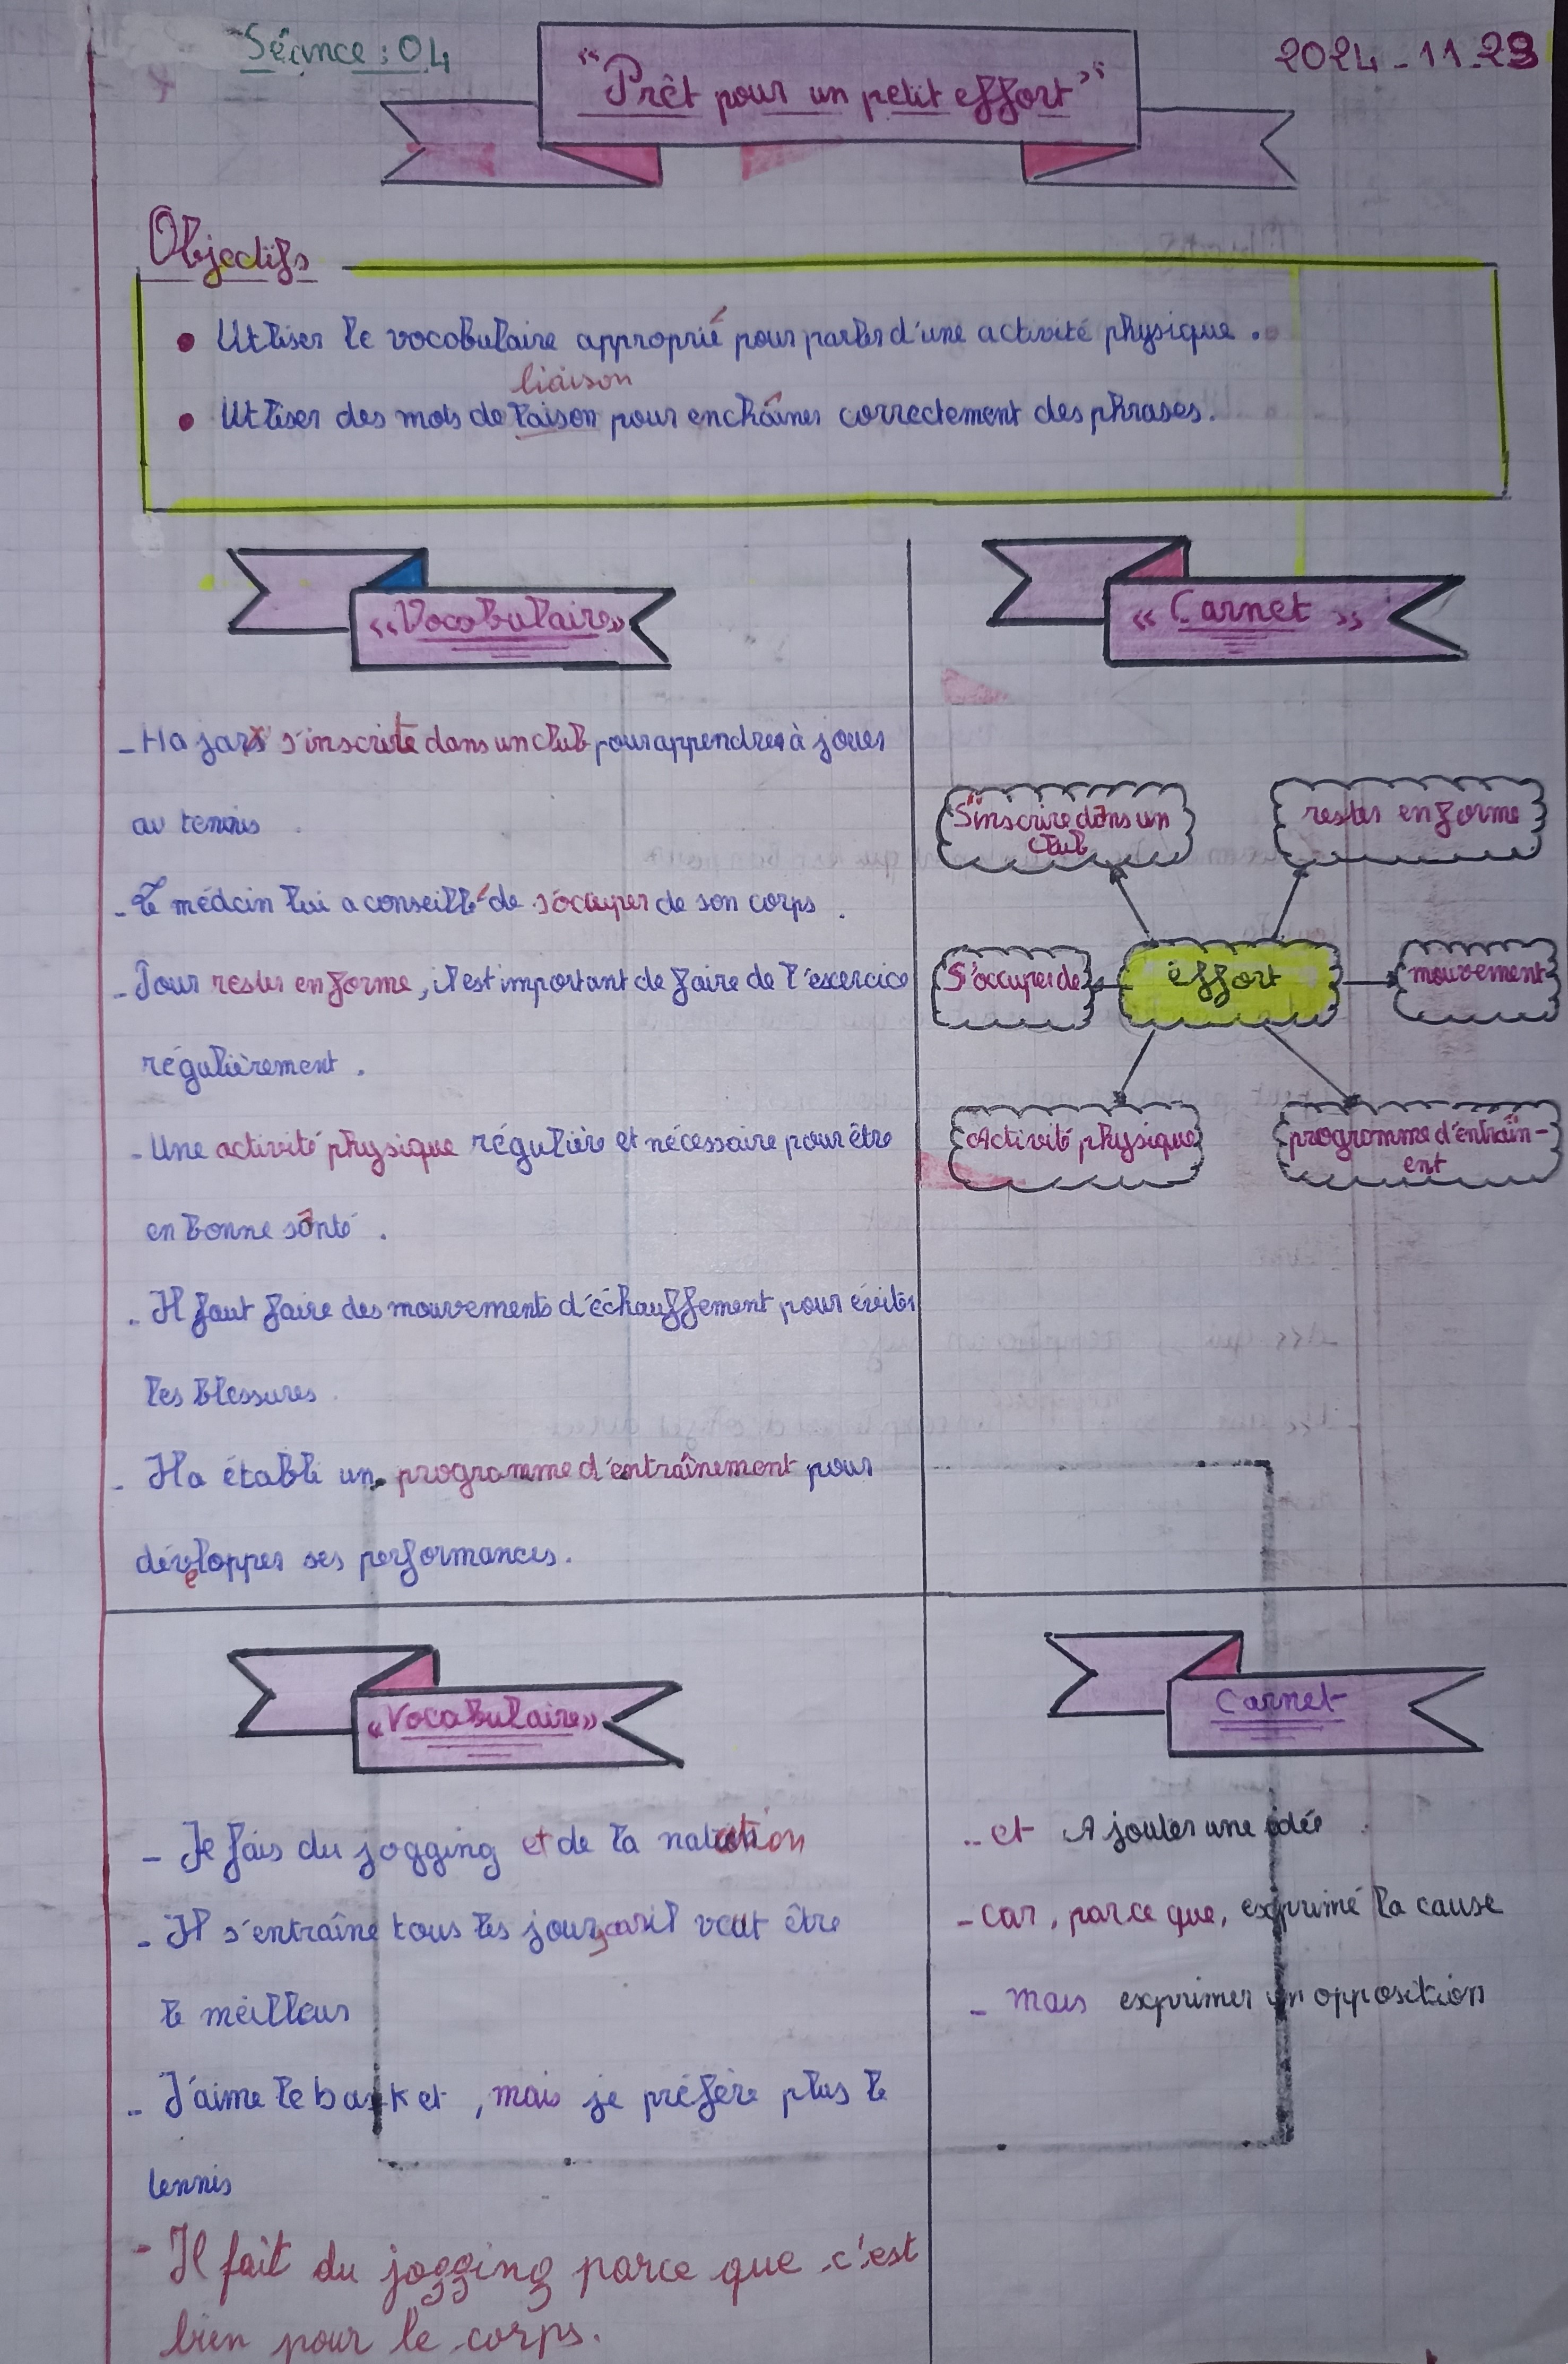 Séance : 04
"Prêt pour un petit effort"
2024-11-29
Objectifs
• Utliser le vocobulaire approprié pour parler d'une activité physique.
liaison
• Utliser des mots de laison pour enchaîner correctement des phrases.
«Vocobulaire»
- Ha s'inscrite dans un club pour apprendre à jouer
au tennis
- le médcin lui a conseillé de s'occuper de son corps.
- Pour rester en forme, il est important de faire de l'exercice
régulièrement.
- Une activité physique régulière et nécessaire pour être
en bonne santé.
- Il faut faire des mouvements d'échauffement pour éviter
les blessures.
- Ha établi un programme d'entraînement pour
développer ses performances.
« Carnet »
S'inscrire dans un
club
rester en forme
S'occuper de
éffort
mouvement
Activité physique
programme d'entraîn-
ent
«Vocabulaire»
- Je fais du jogging et de la natation
- Il s'entraîne tous les jours car il veut être
le meilleur
- J'aime le basket, mais je préfère plus le
tennis
- Il fait du jogging parce que c'est
bien pour le corps.
Carnet
- et Ajouter une idée.
- car, parce que, exprimé la cause
- mais exprimer un opposition